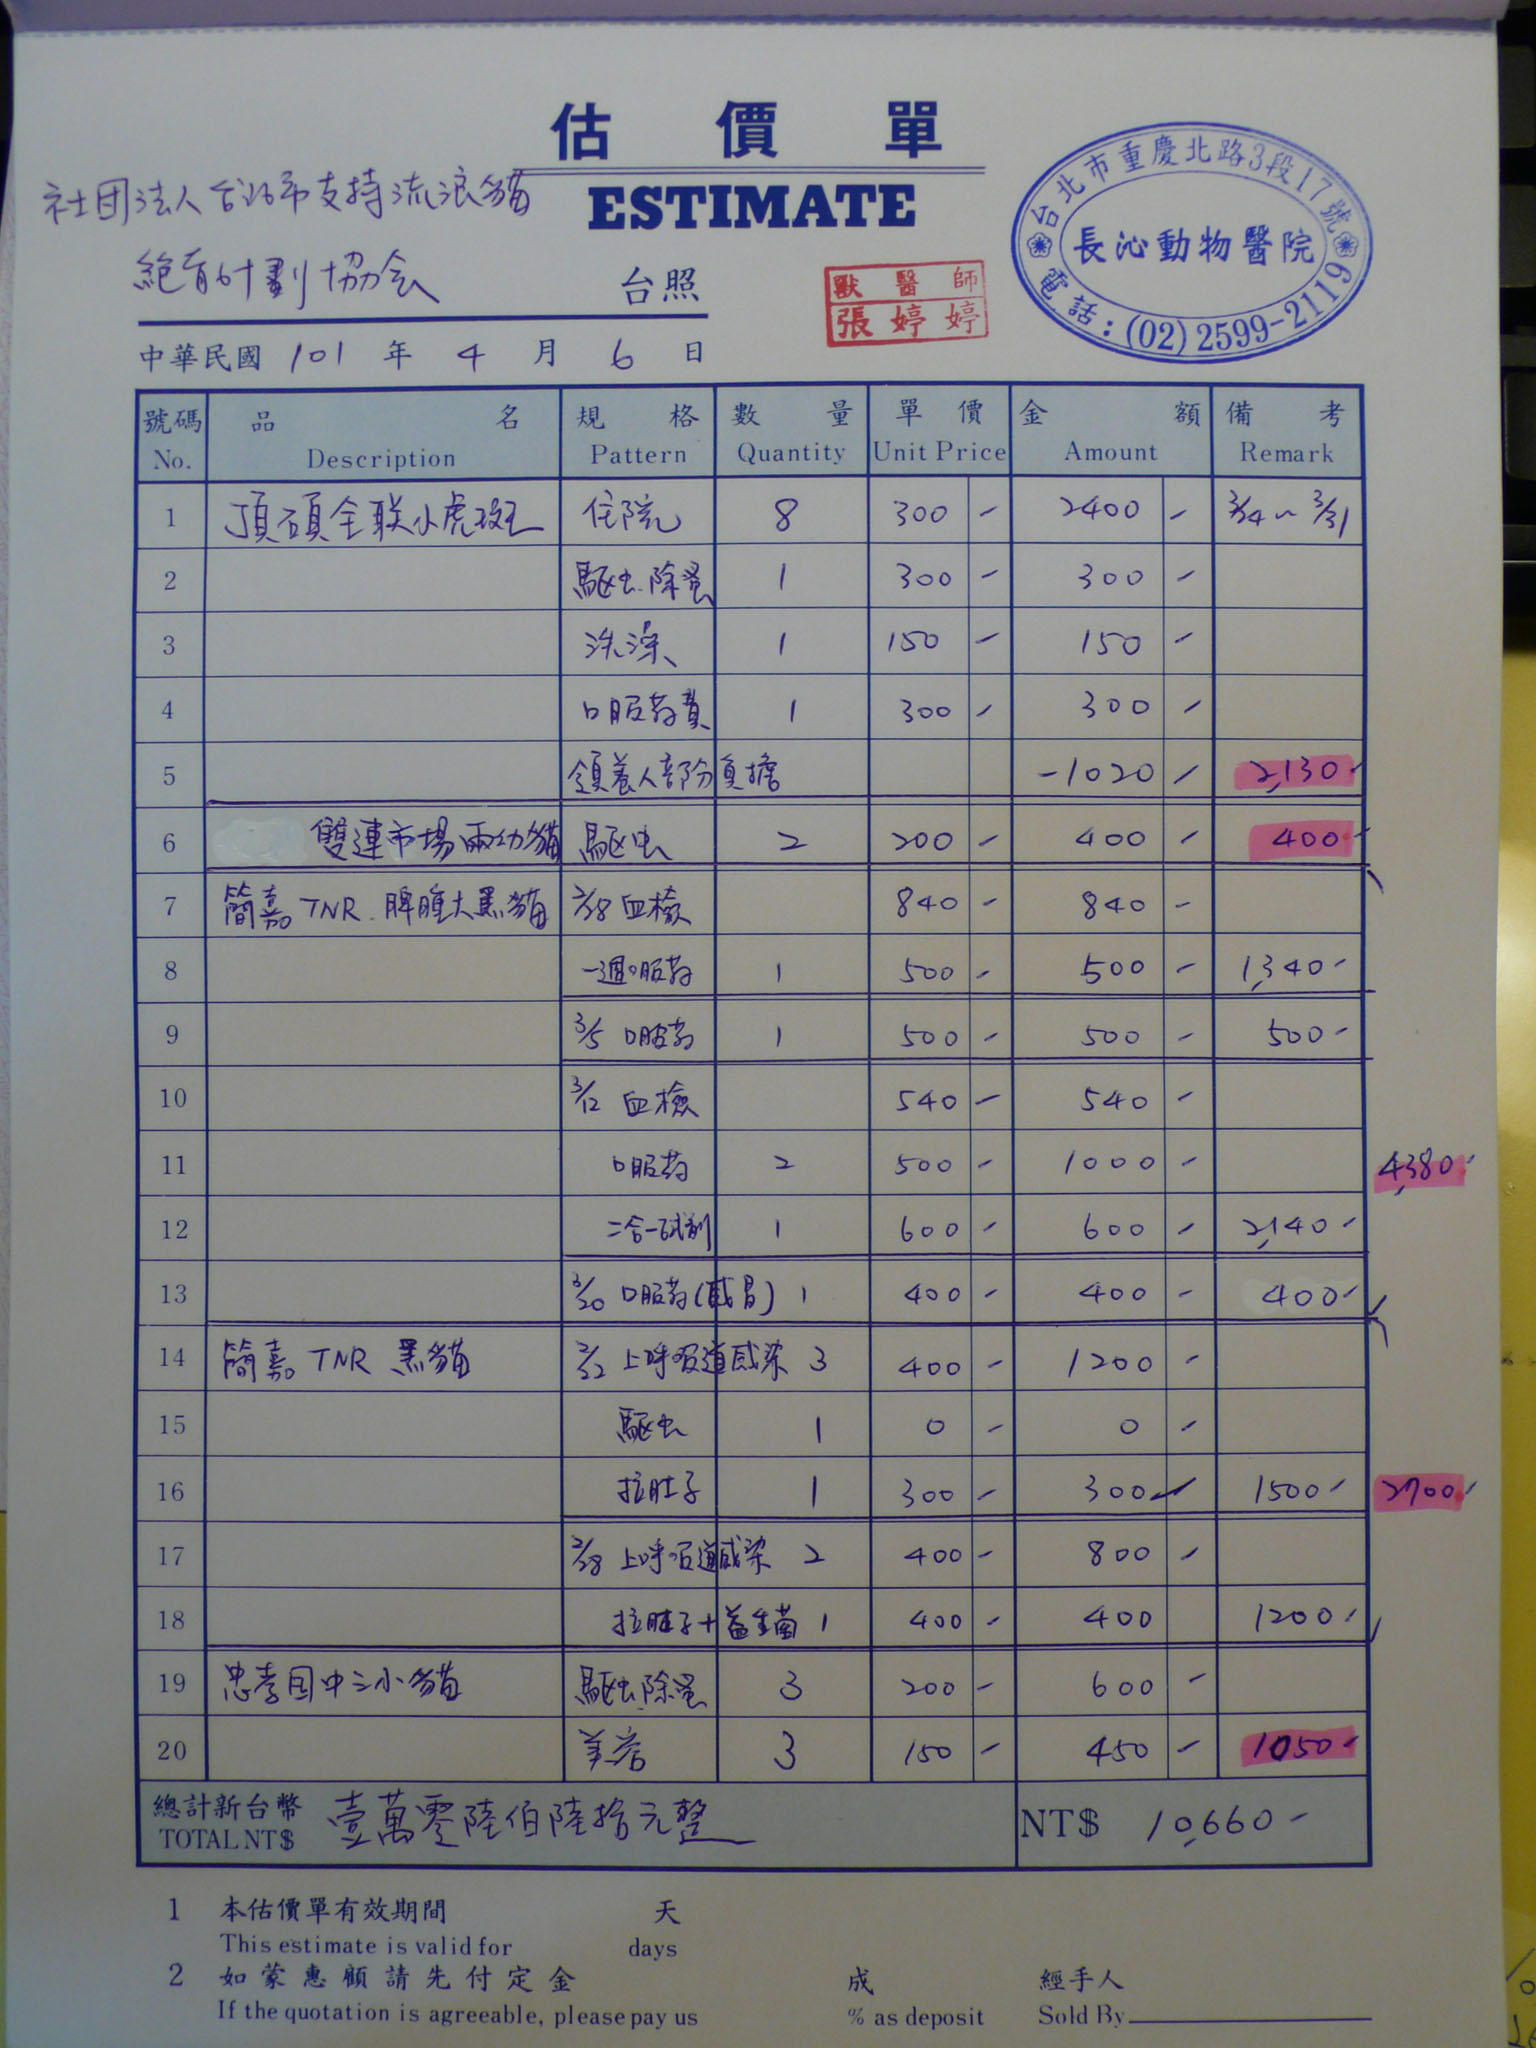 估價單
ESTIMATE
社团法人台北市支持流浪貓
絕育計劃協会 台照
獸醫師
張婷婷
台北市重慶北路3段17號
長沁動物醫院
電話：(02)2599-2119
中華民國 101 年 4 月 6 日
號碼 品名 規格 數量 單價 金額 備考
No. Description Pattern Quantity Unit Price Amount Remark
1 頂碩全联小虎斑 住院 8 300 - 2400 - 3/24~3/31
2 駆虫.除蚤 1 300 - 300 -
3 洗澡 1 150 - 150 -
4 口服药費 1 300 - 300 -
5 領養人部份負擔 -1020 - 2,130-
6 雙連市場兩幼貓 駆虫 2 200 - 400 - 400-
7 簡嘉 TNR. 脾腫大黑貓 2/28 血檢 840 - 840 -
8 一週口服药 1 500 - 500 - 1,340-
9 3/5 口服药 1 500 - 500 - 500-
10 3/12 血檢 540 - 540 -
11 口服药 2 500 - 1000 - 4,380-
12 二合一試剤 1 600 - 600 - 2,140-
13 3/20 口服药(感冒) 1 400 - 400 - 400-
14 簡嘉 TNR 黑貓 2/22 上呼吸道感染 3 400 - 1200 -
15 駆虫 1 0 - 0 -
16 拉肚子 1 300 - 300 - 1500- 2700-
17 2/28 上呼吸道感染 2 400 - 800 -
18 拉肚子+益生菌 1 400 - 400 1200-
19 忠孝国中三小貓 駆虫.除蚤 3 200 - 600 -
20 美容 3 150 - 450 - 1050-
總計新台幣 壹萬零陸佰陸拾元整
TOTAL NT$ NT$ 10,660-
1 本估價單有效期間 天
This estimate is valid for days
2 如蒙惠顧請先付定金 成 經手人
If the quotation is agreeable, please pay us % as deposit Sold By